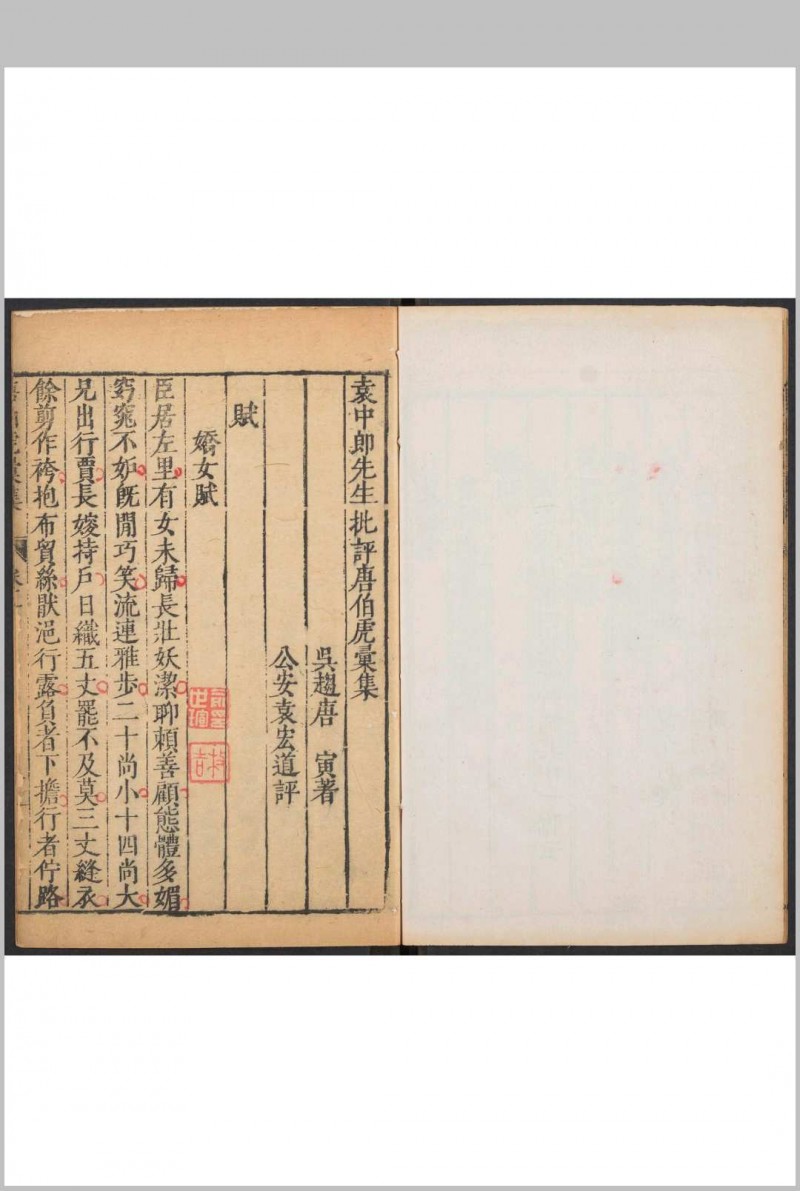 袁中郎先生批評唐伯虎彙集
吳趨唐 寅著
公安袁宏道評
賦
嬌女賦
臣居左里有女未歸長壯妖潔聊賴善顧態體多媚
窈窕不妒既閒巧笑流連雅步二十尚小十四尚大
兄出行賈長嫂持戶日織五丈罷不及莫三丈縫衣
餘剪作袴抱布貿絲厭浥行露負者下擔行者佇路